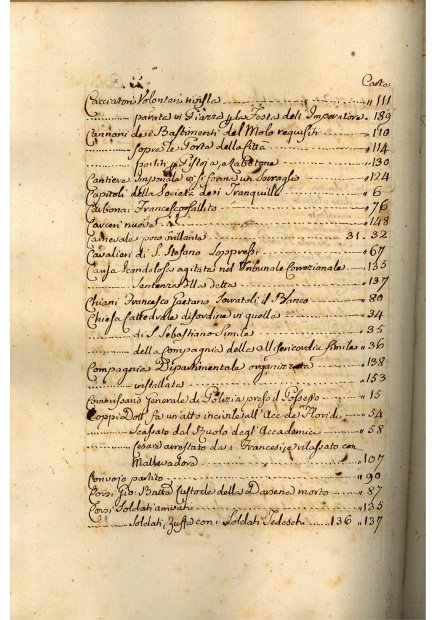 Carta
Cacciatori Volontari rivista ............ " 111
............ parata in Piazza p la Festa dell Imperatore " 189
Cannoni dei Bastimenti del Molo requisiti ............ " 110
............ sopra le Porte della Città ............ " 114
............ partiti p Pistoja, e Bologna ............ " 130
Cantiere Imperiale vi si forma un Serraglio ............ " 124
Capitoli della Società dei Tranquilli ............ " 6
Carbonai Francesco fallito ............ " 76
Carceri nuove ............ " 148
Carnevale poco brillante ............ 31. 32
Cavalieri di S. Stefano soppressi ............ " 67
Causa scandolosa agitata nel Tribunale Correzionale " 135
............ Sentenza alla detta ............ " 137
Chiani Francesco Gaetano ............ " 80
Chiesa Cattedrale disordine in quella ............ " 34
............ di S. Sebastiano Simile ............ " 35
............ della Compagnia della Misericordia Simile " 36
Compagnia Dipartimentale organizzata ............ " 138
............ installata ............ " 153
Commissario Generale di Polizia prese il Possesso ... " 15
Coppia Dott. fa un atto incivile all' Acc. de' Floridi ... " 54
............ Scassato dal Ruolo degl' Accademici ... " 58
............ Cesare arrostato da i Francesi, e rilassato con
Mallevadore ............ " 107
Convojo partito ............ " 90
Corsi Gio: Batta Custode della Darsena morto ... " 87
Corsi Soldati arrivati ............ " 135
............ Soldati, Zuffa con i Soldati Tedeschi ... 136 " 137